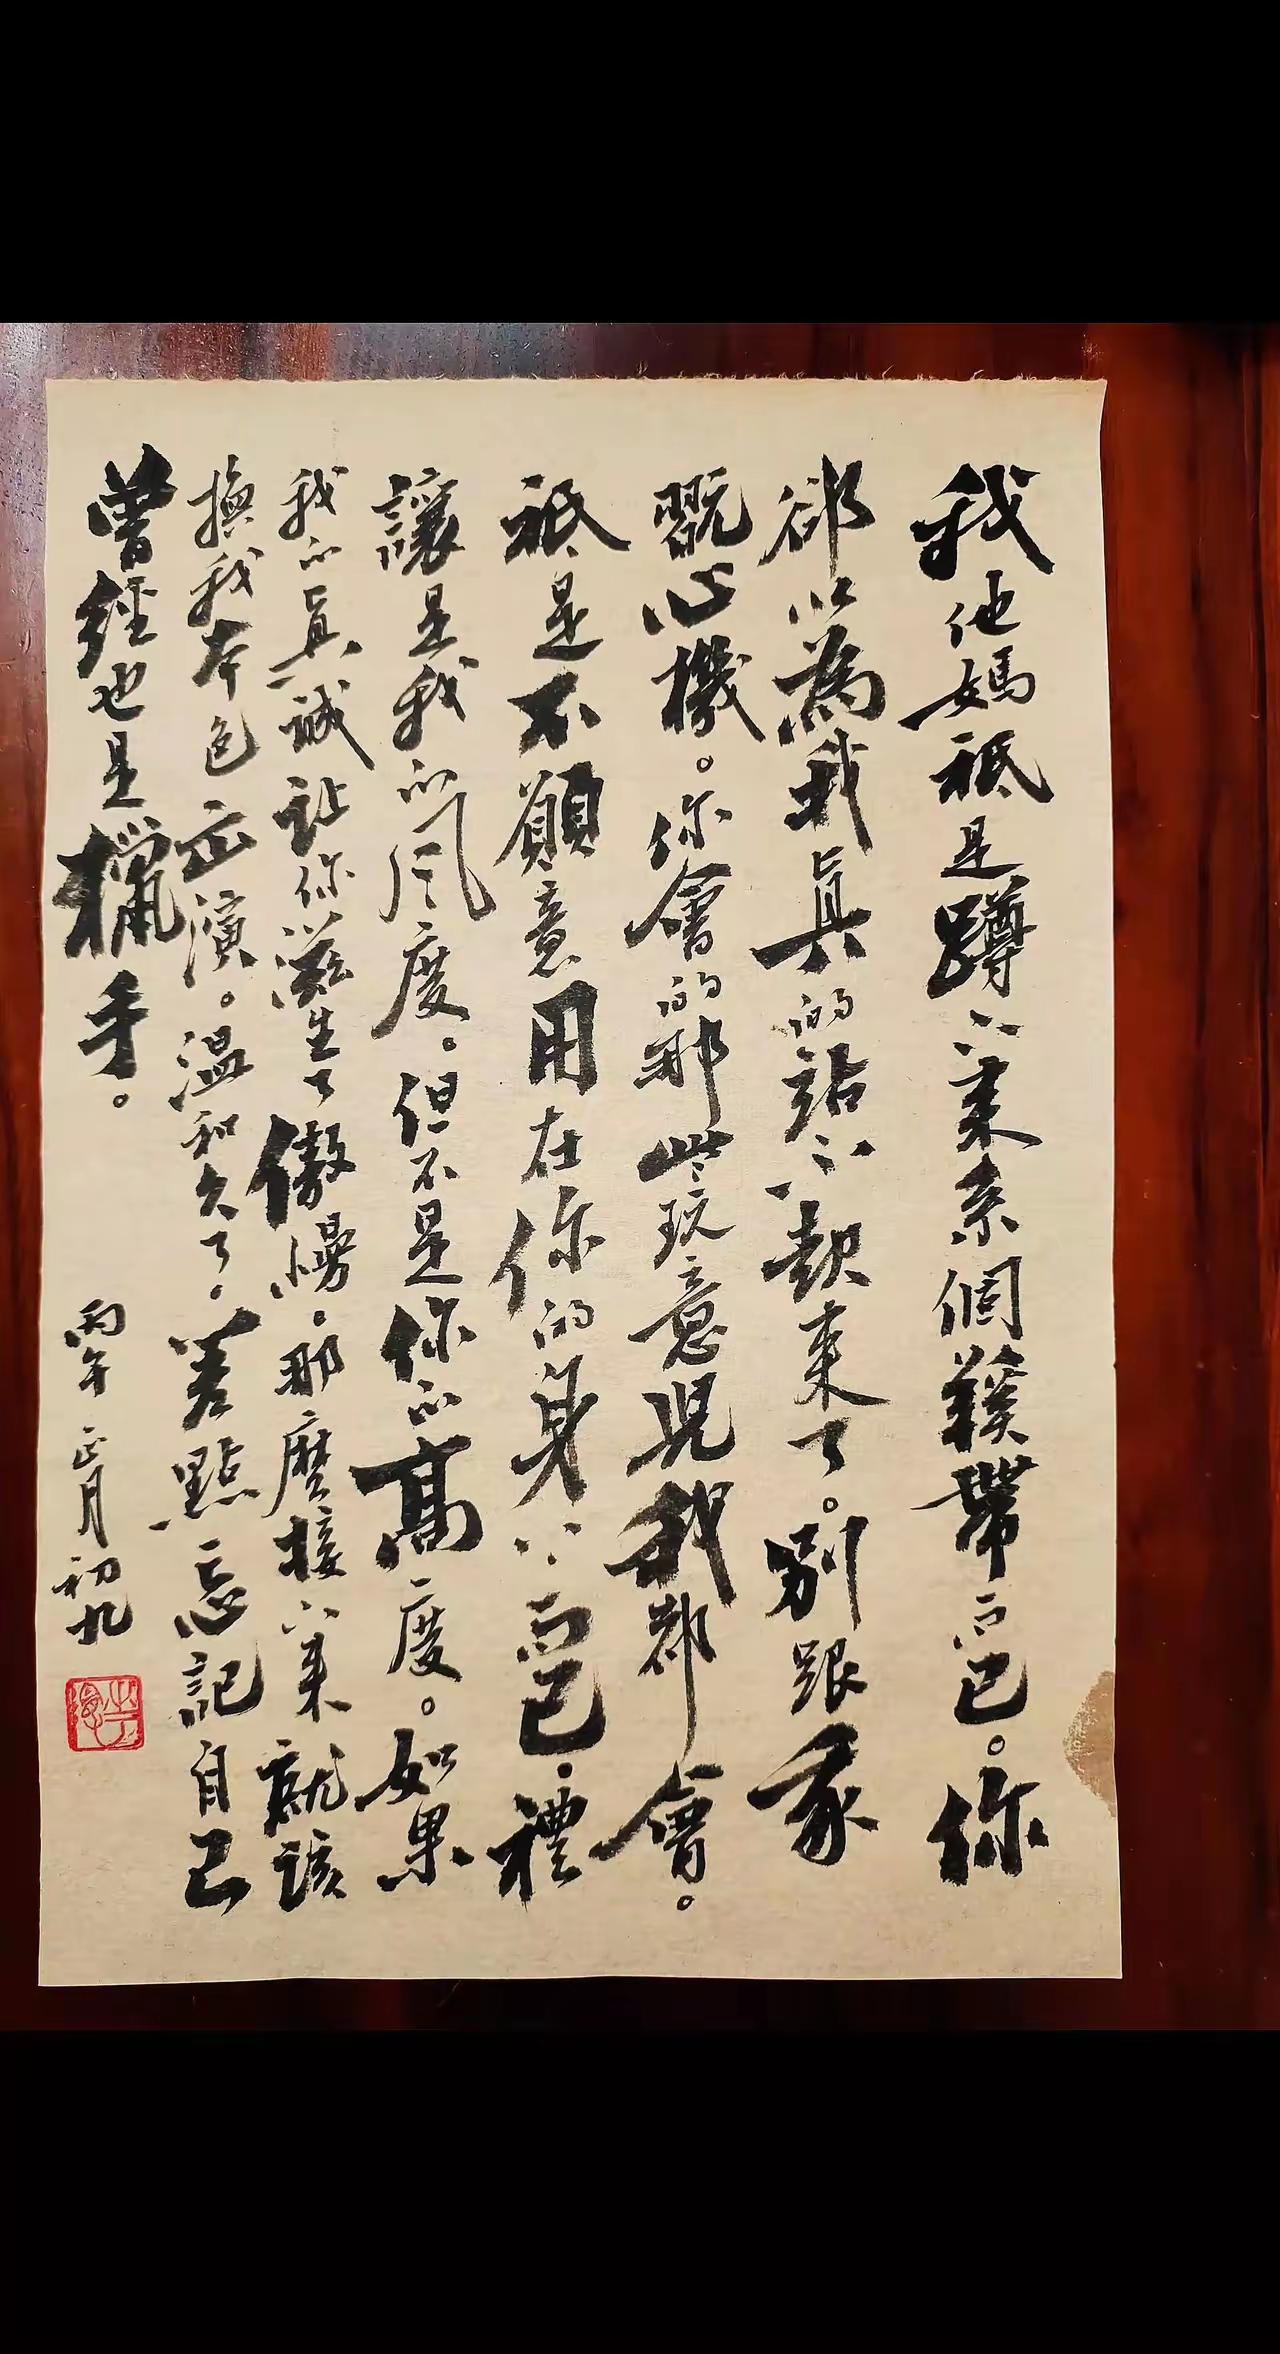 我他媽祇是蹲下來系個鞋帶而已。你
卻以為我真的站不起來了。別跟我
翫心機。你會的那些玩意兒我都會。
祇是不願意用在你的身上而已。禮
讓是我的風度。但不是你的高度。如果
我的真誠讓你滋生了傲慢。那麼接下來就該
換我本色出演。溫和久了。差點忘記自己
曾經也是獵手。
丙午正月初九